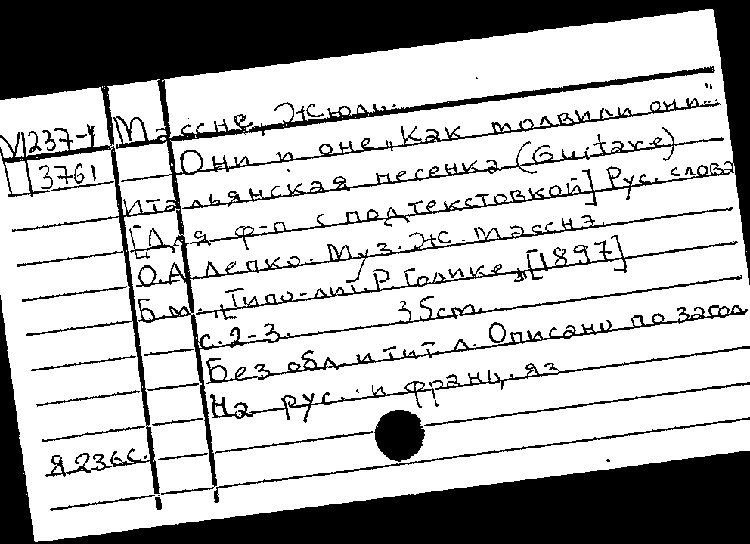 М237-4 Массне, Жюль.
3761 Они и оне „Как молвили они"
Итальянская песенка (Gustave)
[Для ф-п с подтекстовкой] Рус. слова
О.А. Лепко. Муз. Ж. Массне.
Б.м., Типо-лит. Р. Голике, [1897]
с. 2-3. 35cm.
Без обл. и тит. л. Описано по загол
На рус. и франц. яз
Я 236с.